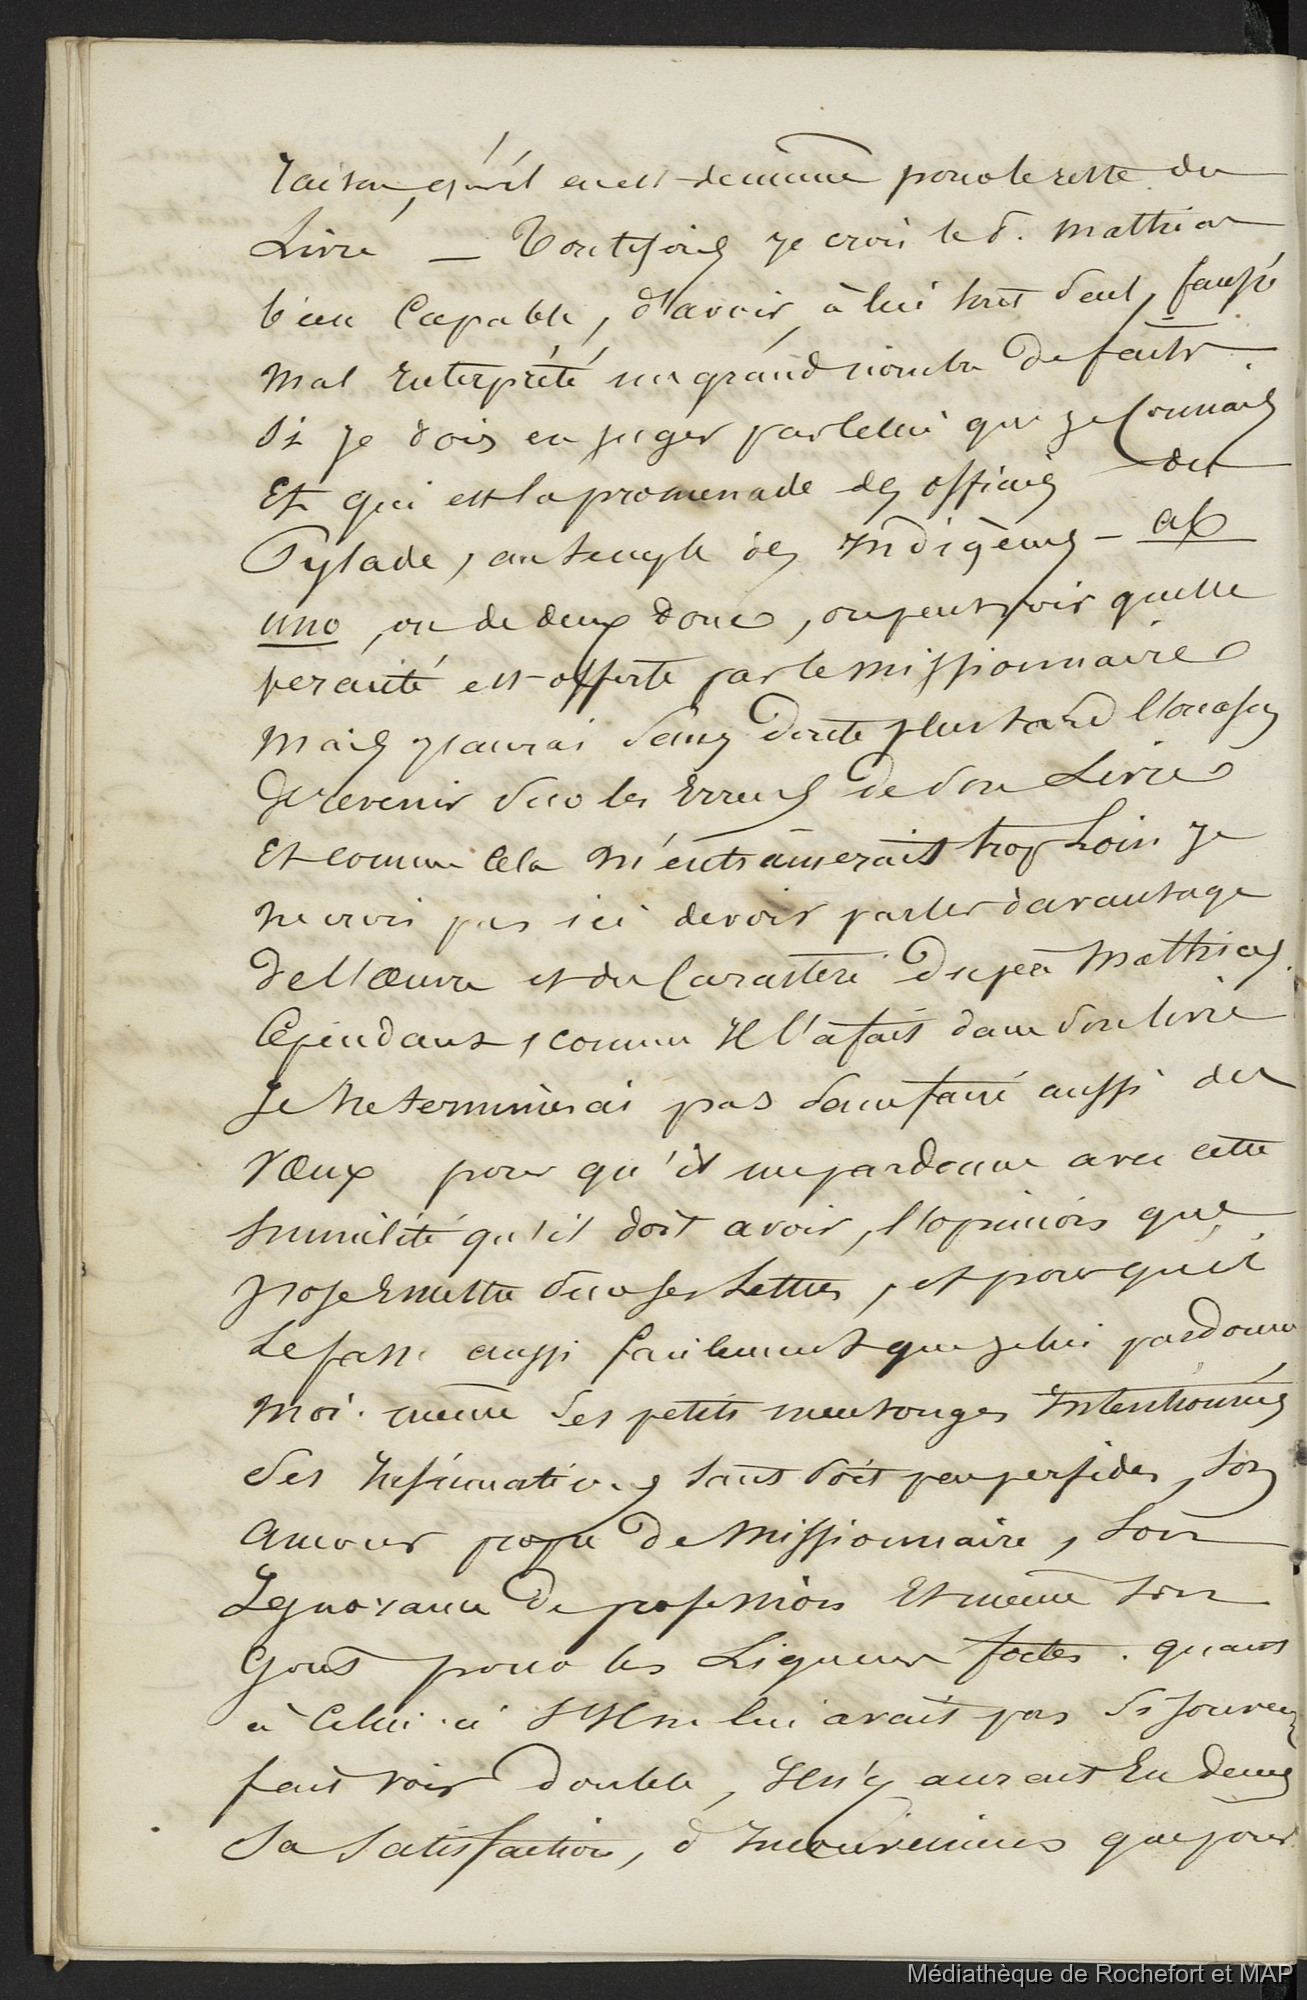 raison, qu'il en est de même pour le reste du
Livre — Toutefois je crois le d. Mathias
bien Capable, d'avoir, à lui tout seul, faussé
mal interprété un grand nombre de faits.
Si je dois en juger par celui que je Connais
Et qui est la promenade des officiers du
Pylade, au temple des Indigènes — ab
uno, ou de deux donc, on peut voir quelle
veracité est offerte par le missionnaire
mais j'aurai sans doute plus tard l'occasion
de revenir sur les Erreurs de son Livre
Et comme Cela m'entrainerait trop Loin je
ne crois pas ici devoir parler davantage
De l'œuvre et du Caractère du père Mathias.
Cependant, comme Il l'a fait dans son livre
Je ne terminerai pas sans faire aussi des
vœux pour qu'il me pardonne avec cette
humilité qu'il doit avoir, l'opinion que
j'ose Emettre sur ses Lettres, et pour qu'il
Le fasse aussi facilement que je lui pardonne
moi-même Ses petits mensonges Intentionnés
Ses Insinuations tant soit peu perfides, Son
amour propre De Missionnaire, Son
Ignorance De profession Et même son
Gout pour les Liqueurs fortes. quant
à Celui-ci S'Il ne lui avait pas Si Souvent
fait voir double, Il n'y aurait Eu dans
Sa Satisfaction, d'Inconvénients que pour